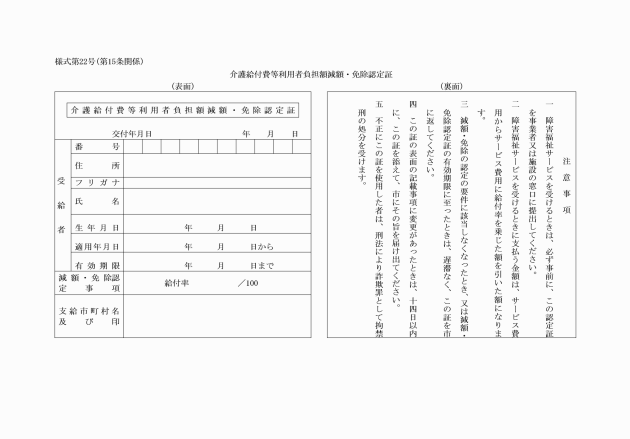 様式第22号(第15条関係)
介護給付費等利用者負担額減額・免除認定証
(表面)
介護給付費等利用者負担額減額・免除認定証
交付年月日　年　月　日
受給者
番号
住所
フリガナ
氏名
生年月日　年　月　日
適用年月日　年　月　日から
有効期限　年　月　日まで
減額・免除認
定事項
給付率　／100
支給市町村名
及び印
(裏面)
注意事項
一　障害福祉サービスを受けるときは、必ず事前に、この認定証
を事業者又は施設の窓口に提出してください。
二　障害福祉サービスを受けるときに支払う金額は、サービス費
用からサービス費用に給付率を乗じた額を引いた額になりま
す。
三　減額・免除の認定の要件に該当しなくなったとき、又は減額・
免除認定証の有効期限に至ったときは、遅滞なく、この証を市
に返してください。
四　この証の表面の記載事項に変更があったときは、十四日以内
に、この証を添えて、市にその旨を届け出てください。
五　不正にこの証を使用した者は、刑法により詐欺罪として拘禁
刑の処分を受けます。